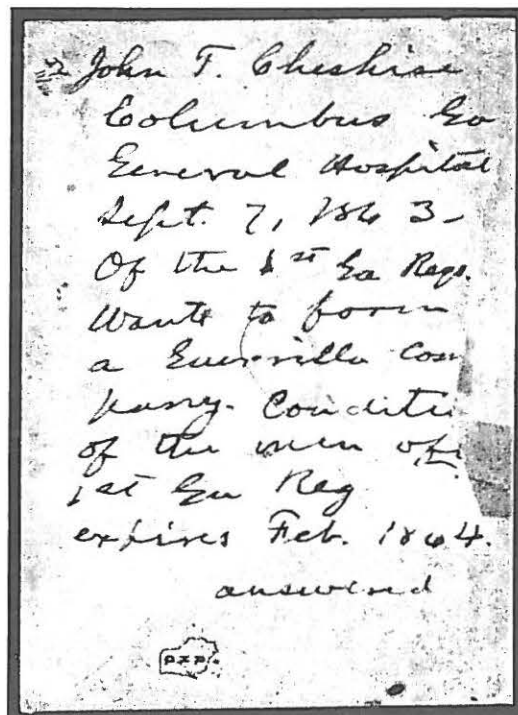 John T. Cheshire
Columbus Ga
General Hospital
Sept. 7, 1863-
Of the 1st Ga Regs.
Wants to form
a Guerrilla Com
pany. Conditi
of the men of
1st Ga Reg
expires Feb. 1864.
answered